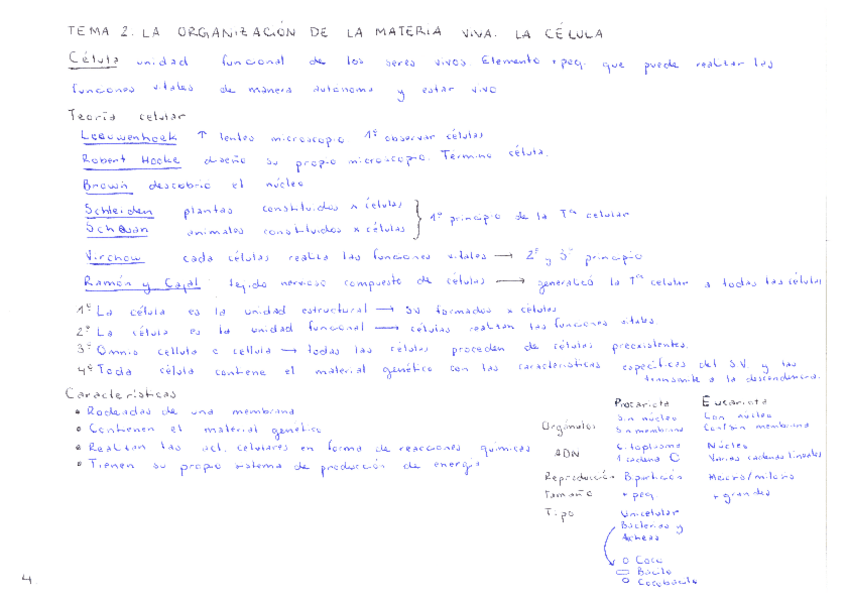 TEMA 2. LA ORGANIZACIÓN DE LA MATERIA VIVA. LA CÉLULA
Célula unidad funcional de los seres vivos Elemento + peq. que puede realizar las
funciones vitales de manera autonoma y estar vivo
Teoría celular
Leeuwenhoek ↑ lentes microscopio 1º observar células
Robert Hooke diseño su propio microscopio. Término célula.
Brown descobrio el núcleo
Schleiden plantas constituidos x células
Schwan animales constituidos x células } 1º principio de la Tª celular
Virchow cada células realiza las funciones vitales → 2º y 3º principio
Ramón y Cajal tejido nervioso compuesto de células → generalizó la Tª celular a todas las células
1º La célula es la unidad estructural → SV formados x células
2º La célula es la unidad funcional → células realizan las funciones vitales
3º Omnis cellula e cellula → todas las células proceden de células preexistentes.
4º Toda célula contiene el material genético con las características específicas del S.V. y las
transmite a la descendencia.
Características
• Rodeadas de una membrana
• Contienen el material genético
• Realizan las act. celulares en forma de reacciones químicas
• Tienen su propio sistema de producción de energía
Procariota Eucariota
Sin núcleo Con núcleo
Orgánulos Sin membrana Contien membrana
ADN Citoplasma Núcleo
1 cadena C Varias cadenas lineales
Reproducción Bipartición Meiosis/mitosis
Tamaño + peq. + grandes
Tipo Unicelular
Bacterias y
Coco
Bacilo
Cocobacilo
4